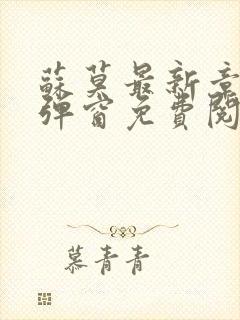 蘇莫最新章
彈窗免費閱
慕青青